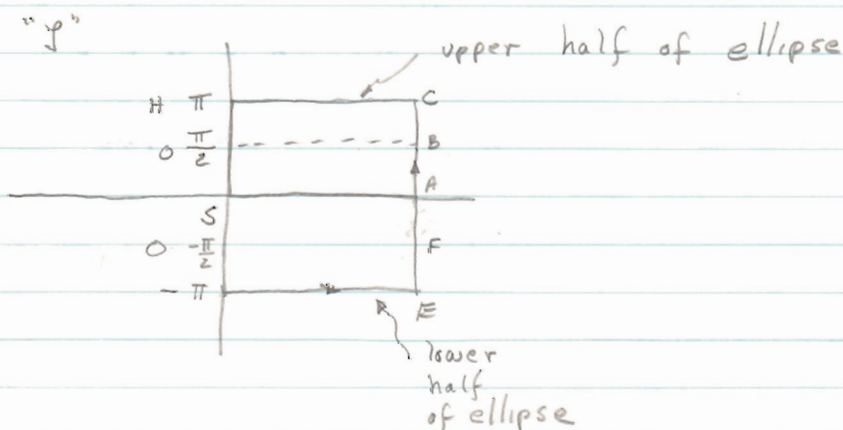 "ζ"
upper half of ellipse
H π C
O π/2 B
A
S
O -π/2 F
- π E
lower
half
of ellipse